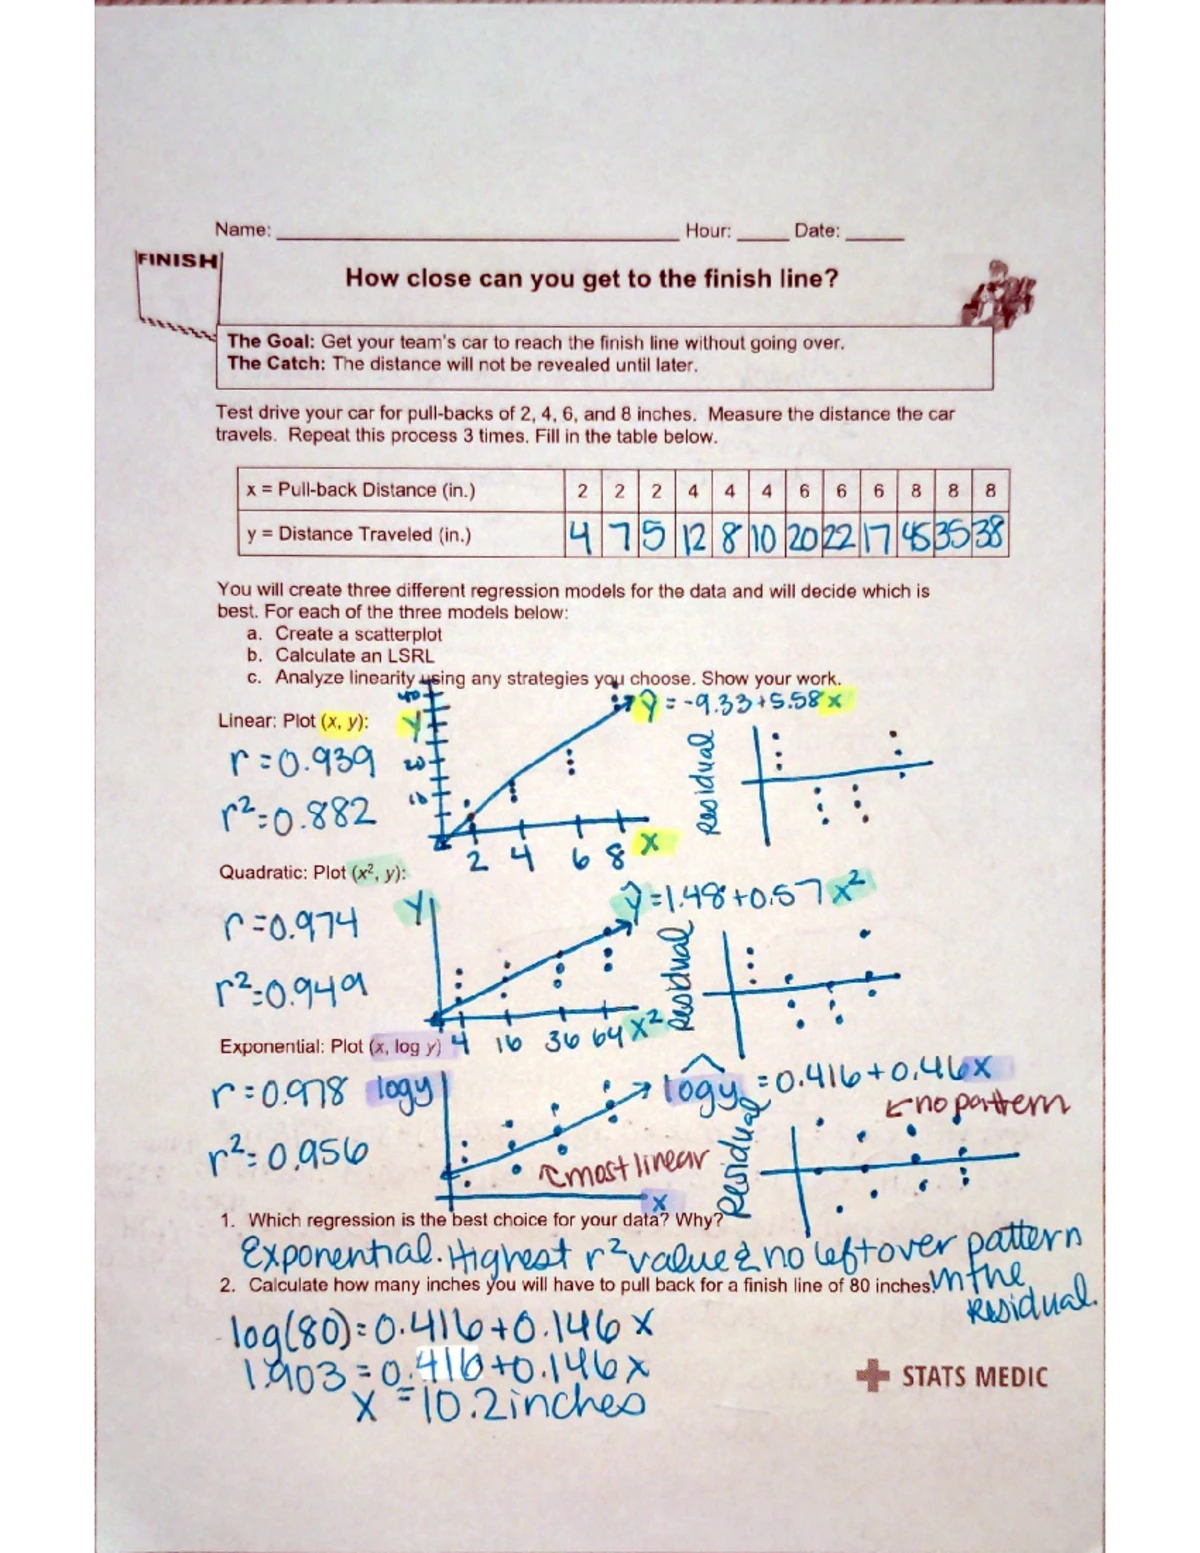 Name: ______ Hour: ____ Date: ____
FINISH
How close can you get to the finish line?
The Goal: Get your team's car to reach the finish line without going over.
The Catch: The distance will not be revealed until later.
Test drive your car for pull-backs of 2, 4, 6, and 8 inches. Measure the distance the car
travels. Repeat this process 3 times. Fill in the table below.
x = Pull-back Distance (in.) 2 2 2 4 4 4 6 6 6 8 8 8
y = Distance Traveled (in.) 4 7 5 12 8 10 20 22 17 45 35 38
You will create three different regression models for the data and will decide which is
best. For each of the three models below:
a. Create a scatterplot
b. Calculate an LSRL
c. Analyze linearity using any strategies you choose. Show your work.
Linear: Plot (x, y):
r=0.939
r²=0.882
40
Y
20
10
2 4 6 8 X
ŷ=-9.33+5.58x
Residual
Quadratic: Plot (x², y):
r=0.974
r²=0.949
Y
4 16 36 64 X²
ŷ=1.48+0.57x²
Residual
Exponential: Plot (x, log y)
r=0.978
r²=0.956
logy
x
logy=0.416+0.46x
←no pattern
←most linear
Residual
1. Which regression is the best choice for your data? Why?
Exponential. Highest r² value & no leftover pattern
in the
residual.
2. Calculate how many inches you will have to pull back for a finish line of 80 inches.
log(80)=0.416+0.146x
1.903=0.416+0.146x
x=10.2inches
STATS MEDIC